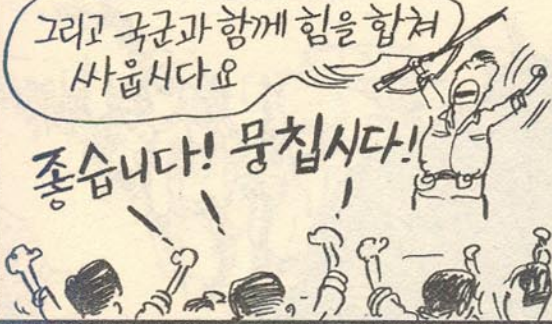 그리고 국군과 함께 힘을 합쳐
싸웁시다요
좋습니다! 뭉칩시다!